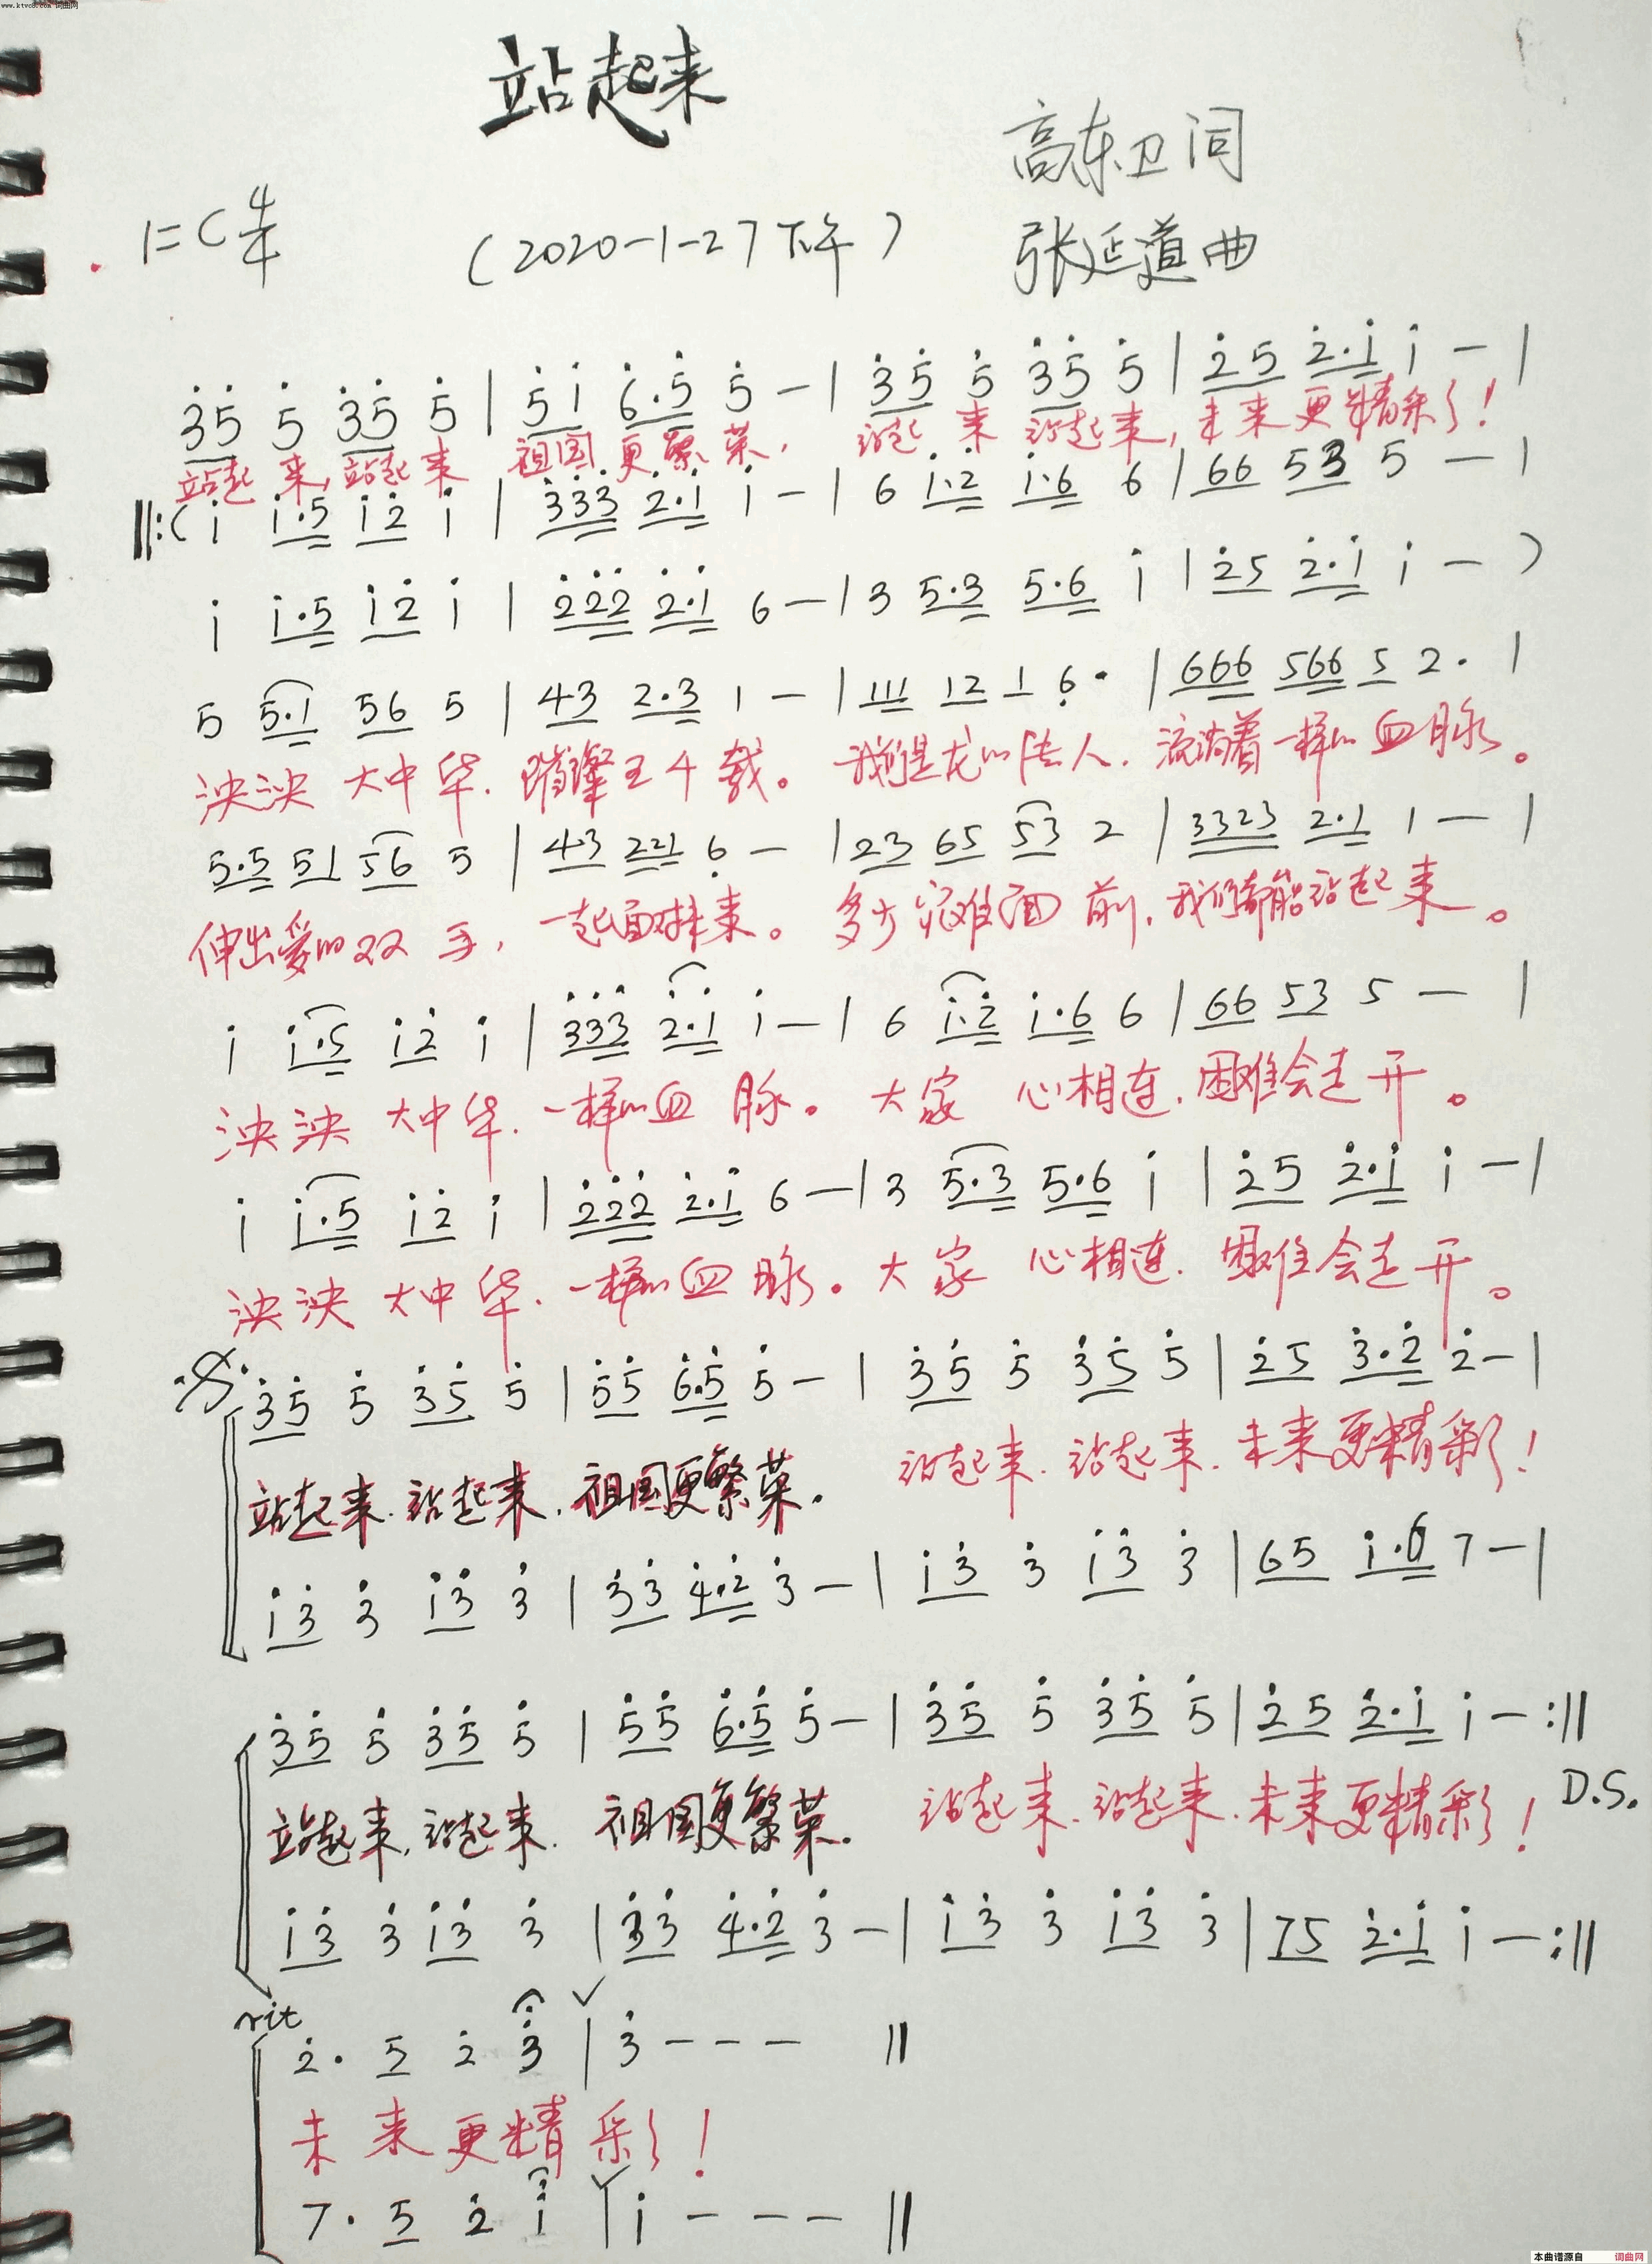 www.ktvc8.com 词曲网
站起来
高东卫词
1=C 4/4 (2020-1-27下午) 张延道曲
3̇5̇ 5̇ 3̇5̇ 5̇ | 5̇1̇ 6̇·5̇ 5̇ - | 3̇5̇ 5̇ 3̇5̇ 5̇ | 2̇5 2̇·1̇ 1̇ - |
站起来,站起来 祖国更繁荣, 站起来 站起来,未来更精彩!
‖:( 1̇ 1̇·5 1̇2̇ 1̇ | 3̇3̇3̇ 2̇·1̇ 1̇ - | 6 1̇·2̇ 1̇·6 6 | 66 53 5 - |
1̇ 1̇·5 1̇2̇ 1̇ | 2̇2̇2̇ 2̇·1̇ 6 - | 3 5·3 5·6 1̇ | 2̇5 2̇·1̇ 1̇ - )
5 5·1 56 5 | 43 2·3 1 - | 111 12 1 6̣· | 666 566 5 2· |
泱泱 大中华.璀璨五千载。 我们是龙的传人.流淌着一样的血脉。
5·5 51 56 5 | 43 221 6̣ - | 23 65 53 2 | 3323 2·1 1 - |
伸出爱的双手,一起面对未来。 多少灾难面前,我们都能站起来。
1̇ 1̇·5 1̇2̇ 1̇ | 3̇3̇3̇ 2̇·1̇ 1̇ - | 6 1̇·2̇ 1̇·6 6 | 66 53 5 - |
泱泱 大中华.一样的血脉。 大家 心相连.困难会走开。
1̇ 1̇·5 1̇2̇ 1̇ | 2̇2̇2̇ 2̇·1̇ 6 - | 3 5·3 5·6 1̇ | 2̇5 2̇·1̇ 1̇ - |
泱泱 大中华.一样的血脉。大家 心相连.困难会走开。
3̇5̇ 5̇ 3̇5̇ 5̇ | 5̇5̇ 6̇·5̇ 5̇ - | 3̇5̇ 5̇ 3̇5̇ 5̇ | 2̇5 3̇·2̇ 2̇ - |
站起来.站起来.祖国更繁荣. 站起来.站起来.未来更精彩!
1̇3̇ 3̇ 1̇3̇ 3̇ | 3̇3̇ 4̇·2̇ 3̇ - | 1̇3̇ 3̇ 1̇3̇ 3̇ | 65 1̇·6 7 - |
3̇5̇ 5̇ 3̇5̇ 5̇ | 5̇5̇ 6̇·5̇ 5̇ - | 3̇5̇ 5̇ 3̇5̇ 5̇ | 2̇5 2̇·1̇ 1̇ - :‖
站起来,站起来. 祖国更繁荣. 站起来.站起来.未来更精彩! D.S.
1̇3̇ 3̇ 1̇3̇ 3̇ | 3̇3̇ 4̇·2̇ 3̇ - | 1̇3̇ 3̇ 1̇3̇ 3̇ | 75 2̇·1̇ 1̇ - :‖
rit
2̇· 5 2̇ 3̇ | 3̇ - - - ‖
未来更精彩!
7· 5 2̇ 1̇ | 1̇ - - - ‖
本曲谱源自 词曲网